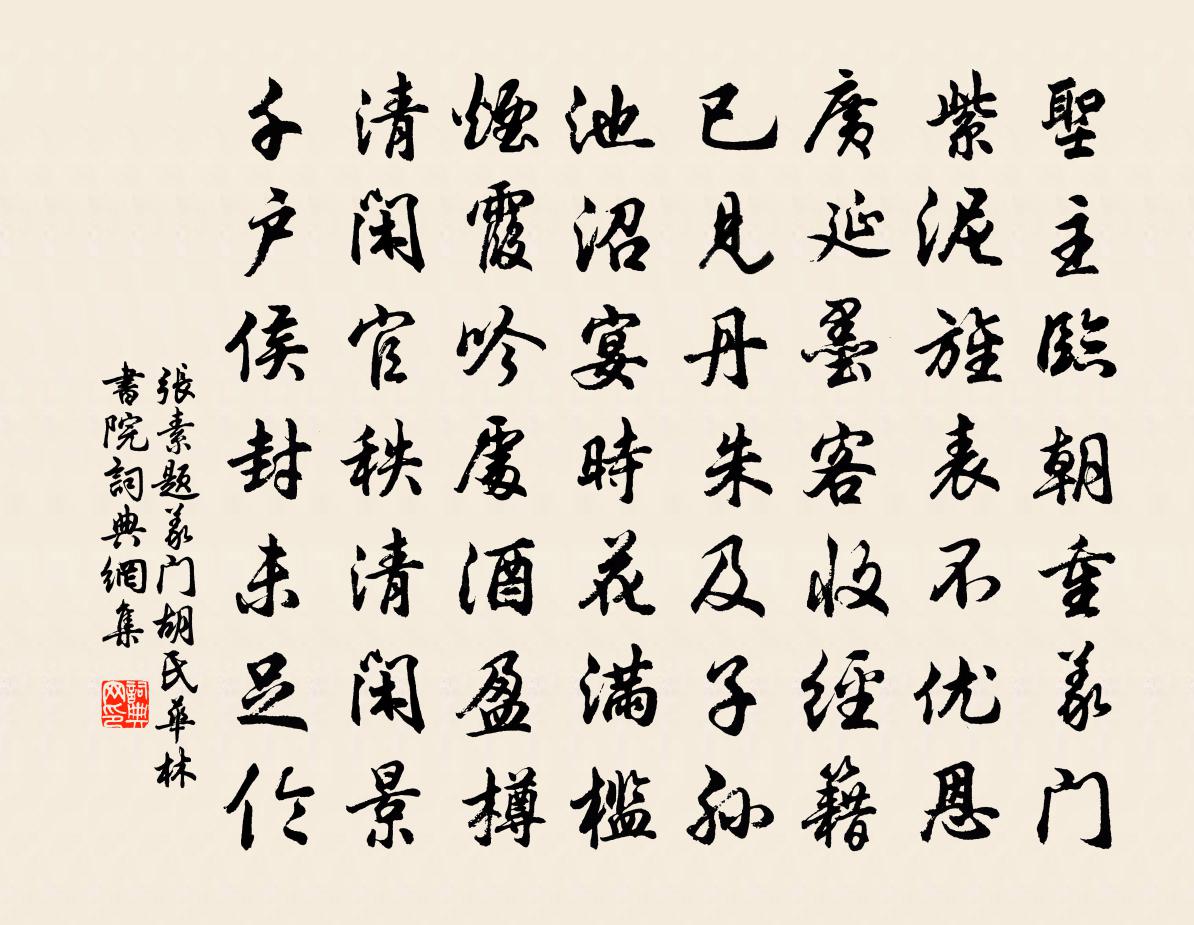 聖主臨朝重義门
紫泥旌表不优恩
廣延墨客收經籍
已見丹朱及子孙
池沼宴時花满檻
煙霞吟處酒盈樽
清闲官秩清闲景
千户侯封未足伦
張素題義门胡氏華林
書院詞典網集
詞典
网印